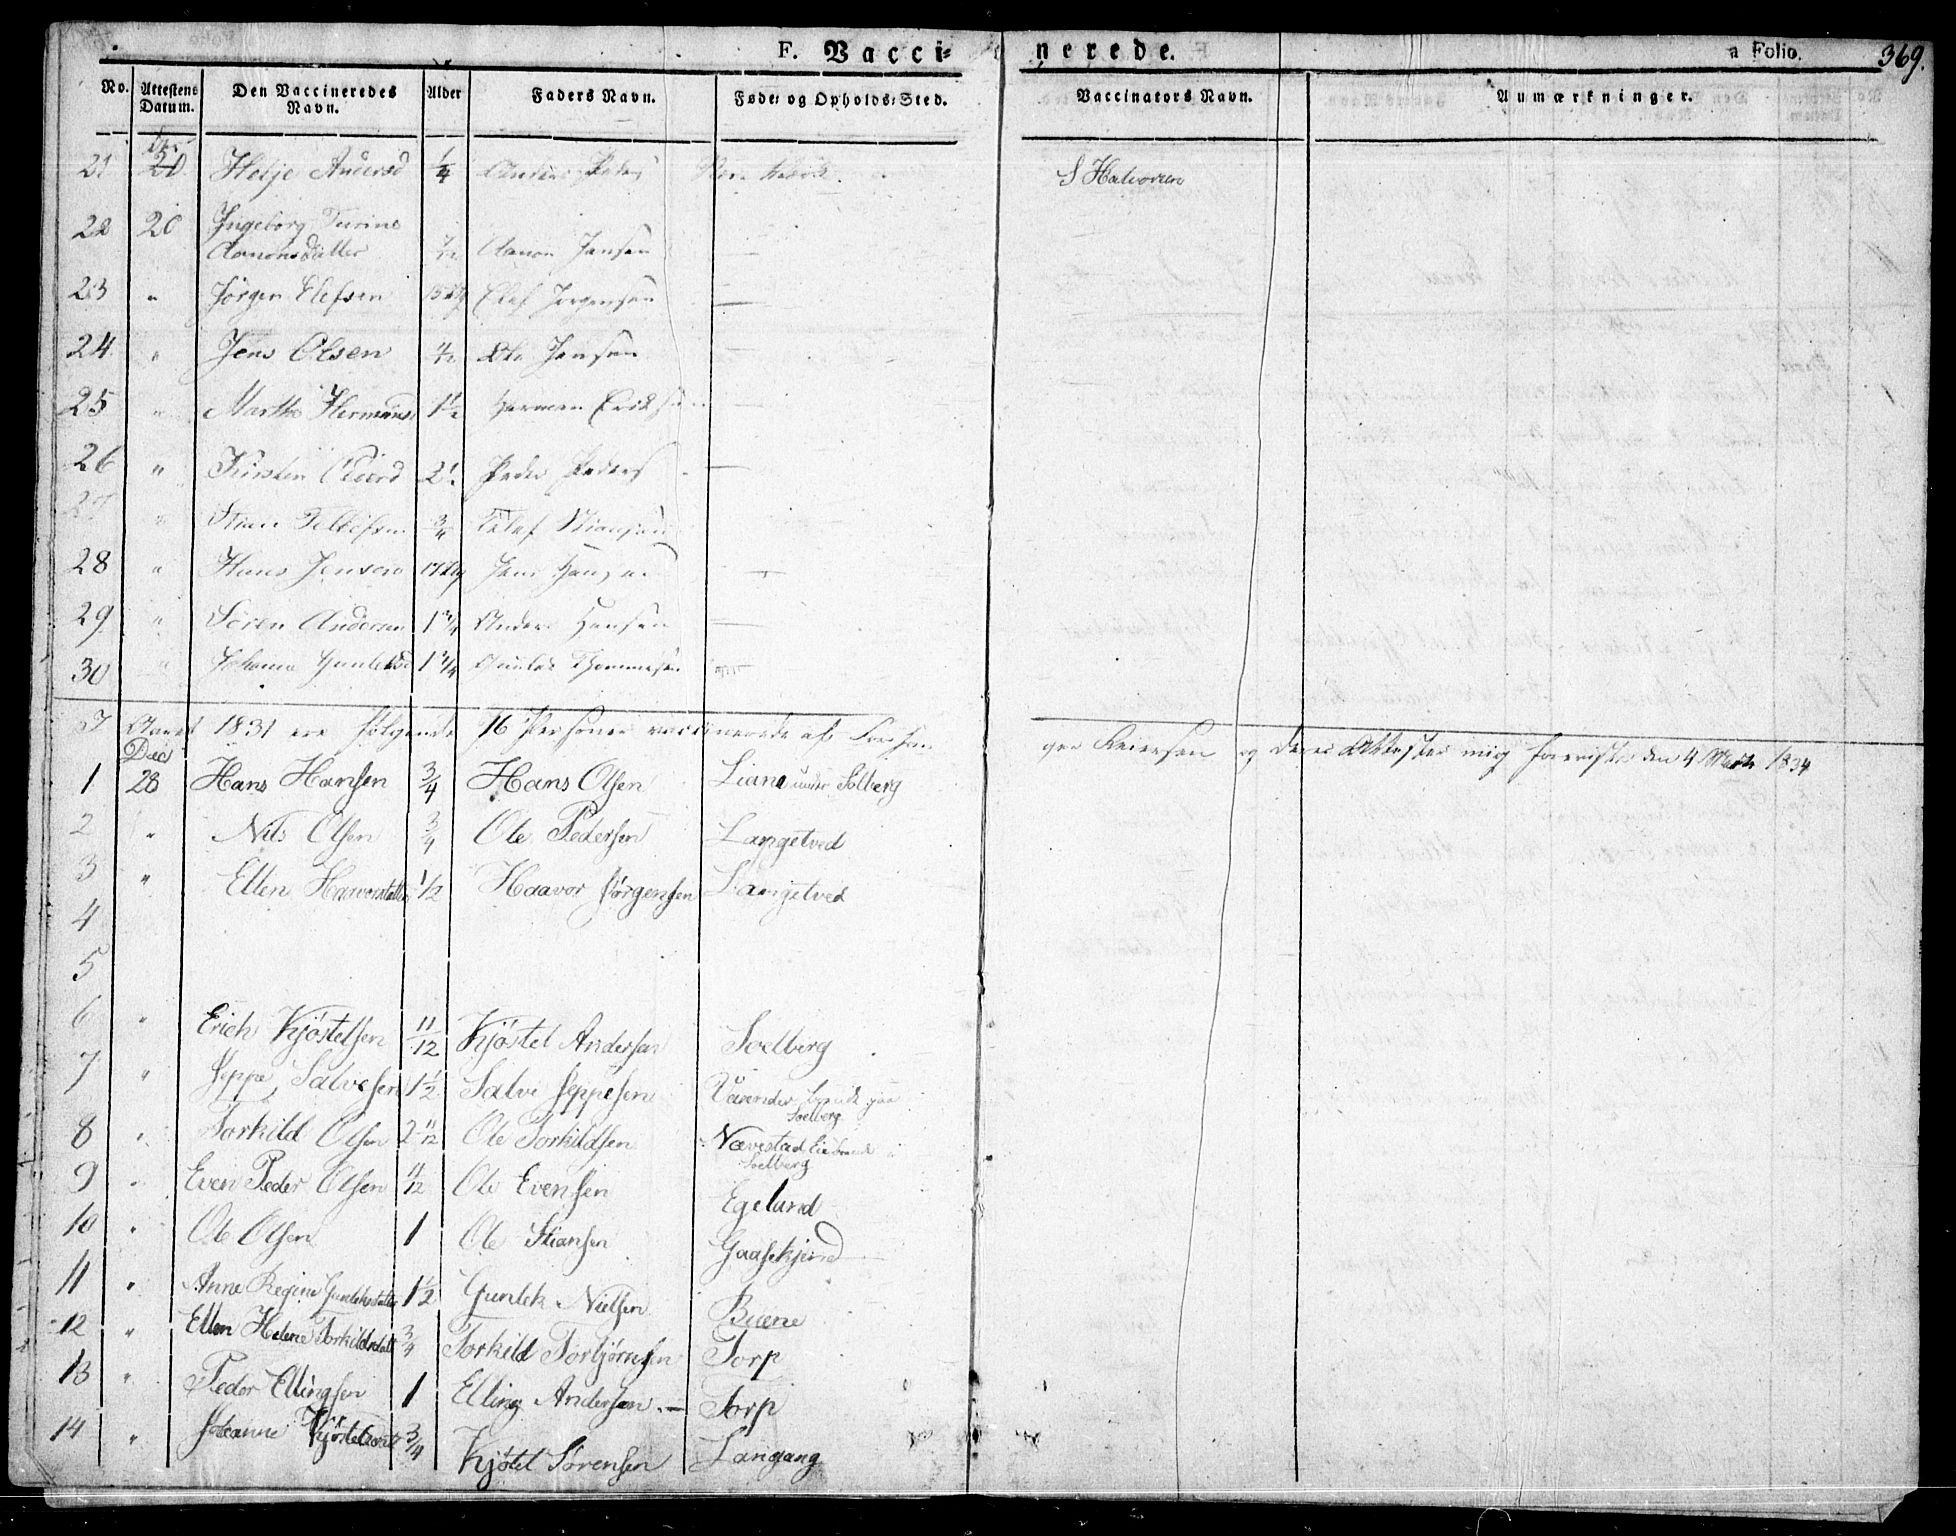 F. Vacci= nerede. a Folio. 369.
No. Attestens Datum. Den Vaccineredes Navn. Alder Faders Navn. Føde= og Opholds=Sted. Vaccinators Navn. Anmærkninger.
21 20 Helje Andersd 1/4 Anders Peders S Halvorsen
22 20 Ingeborg Turine
Aanonsdatter Aanon Jensen —
23 " Jørgen Elefsen Elef Jørgensen —
24 " Jens Olsen Ole Jensen —
25 " Marthe Hermans 1 1/2 Herman Eriksen —
26 " Kirsten Peder Peders —
27 " Stian 3/4 Stiansen
28 " Hans Jensen Jens Hansen —
29 " Søren Andersen 1 3/4 Anders Hansen —
30 " Johanne Gunleksd 1 3/4 Gunlek Thommesen —
I Aaret 1831 ere følgende 16 Personer vaccinerede af og deres Attester mig foreviste den 4 Marts 1834
Dec
1 28 Hans Hansen 3/4 Hans Olsen Liane under Solberg
2 " Nils Olsen 3/4 Ole Pedersen Langetved
3 " Ellen Haavorsdatter 1/2 Haavor Jørgensen Langetved
4
5
6 " Erich Kjøstelsen 11/12 Kjøstel Andersen Soelberg
7 " Jeppe Salvesen 1 1/2 Salve Jeppesen
Soelberg
8 " Torkild Olsen 2 11/12 Ole Torkildsen Nævestad
Soelberg
9 " Even Peder Olsen 11/12 Ole Evensen Egeland
10 " Ole Olsen 1 Ole Stiansen Gaasekjend
11 " Anne Regine Gunleksdatter 1 1/2 Gunlek Nielsen Buene
12 " Ellen Helene Torkildsdatt 3/4 Torkild Torbjørnsen Torp
13 " Peder Ellingsen 1 Elling Andersen — Torp
14 " Johanne Kjøstelsdatt 3/4 Kjøtel Sørensen Langang